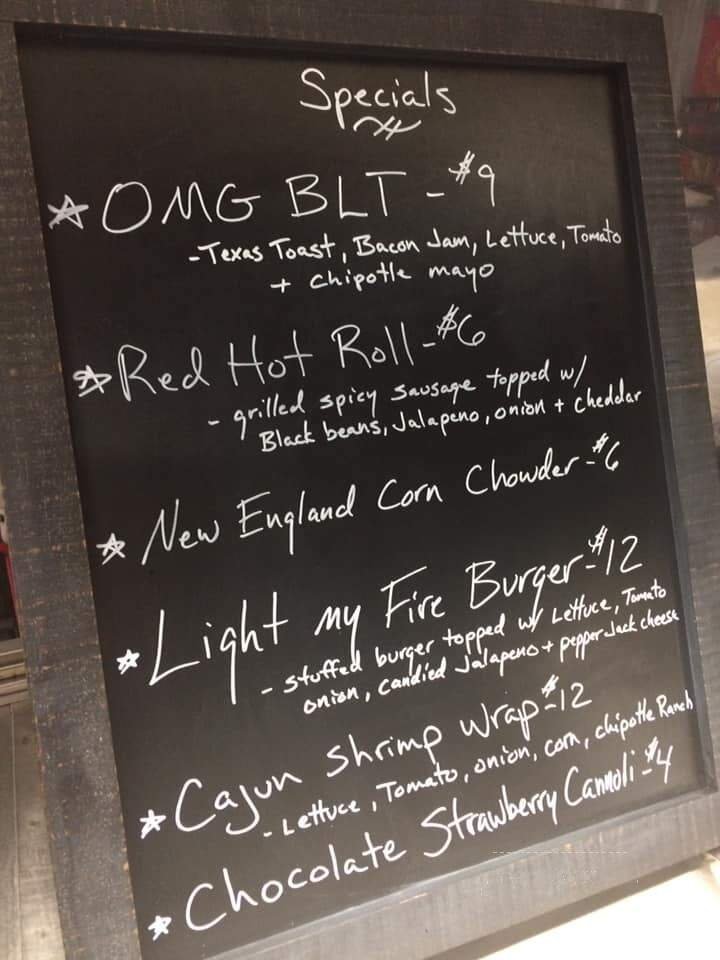 Specials
☆ OMG BLT - $9
- Texas Toast, Bacon Jam, Lettuce, Tomato
+ chipotle mayo
☆ Red Hot Roll - $6
- grilled spicy sausage topped w/
Black beans, Jalapeno, onion + cheddar
☆ New England Corn Chowder - $6
☆ Light my Fire Burger - $12
- stuffed burger topped w/ Lettuce, Tomato
onion, candied Jalapeno + pepper Jack cheese
☆ Cajun shrimp wrap - $12
- Lettuce, Tomato, onion, corn, chipotle Ranch
☆ Chocolate Strawberry Cannoli - $4